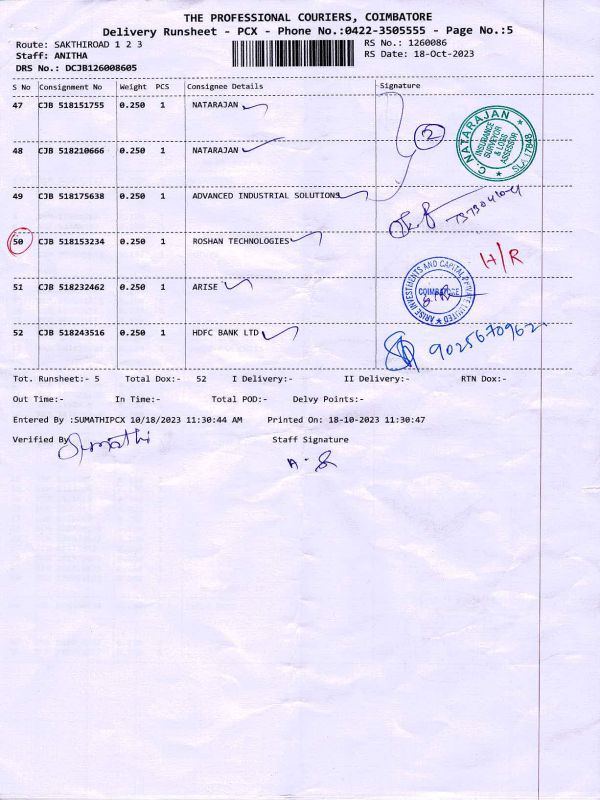 THE PROFESSIONAL COURIERS, COIMBATORE
Delivery Runsheet - PCX - Phone No.:0422-3505555 - Page No.:5
Route: SAKTHIROAD 1 2 3
RS No.: 1260086
Staff: ANITHA
RS Date: 18-Oct-2023
DRS No.: DCJB126008605
S No Consignment No Weight PCS Consignee Details Signature
47 CJB 518151755 0.250 1 NATARAJAN
2
C. NATARAJAN
INSURANCE
SURVEYOR
& LOSS
ASSESSOR
48 CJB 518210666 0.250 1 NATARAJAN
49 CJB 518175638 0.250 1 ADVANCED INDUSTRIAL SOLUTIONS
50 CJB 518153234 0.250 1 ROSHAN TECHNOLOGIES
H/R
51 CJB 518232462 0.250 1 ARISE
ARISE INVESTMENTS AND CAPITAL PRIVATE LIMITED
COIMBATORE
52 CJB 518243516 0.250 1 HDFC BANK LTD
9025670962
Tot. Runsheet:- 5 Total Dox:- 52 I Delivery:- II Delivery:- RTN Dox:-
Out Time:- In Time:- Total POD:- Delvy Points:-
Entered By :SUMATHIPCX 10/18/2023 11:30:44 AM Printed On: 18-10-2023 11:30:47
Verified By Staff Signature
Sumathi